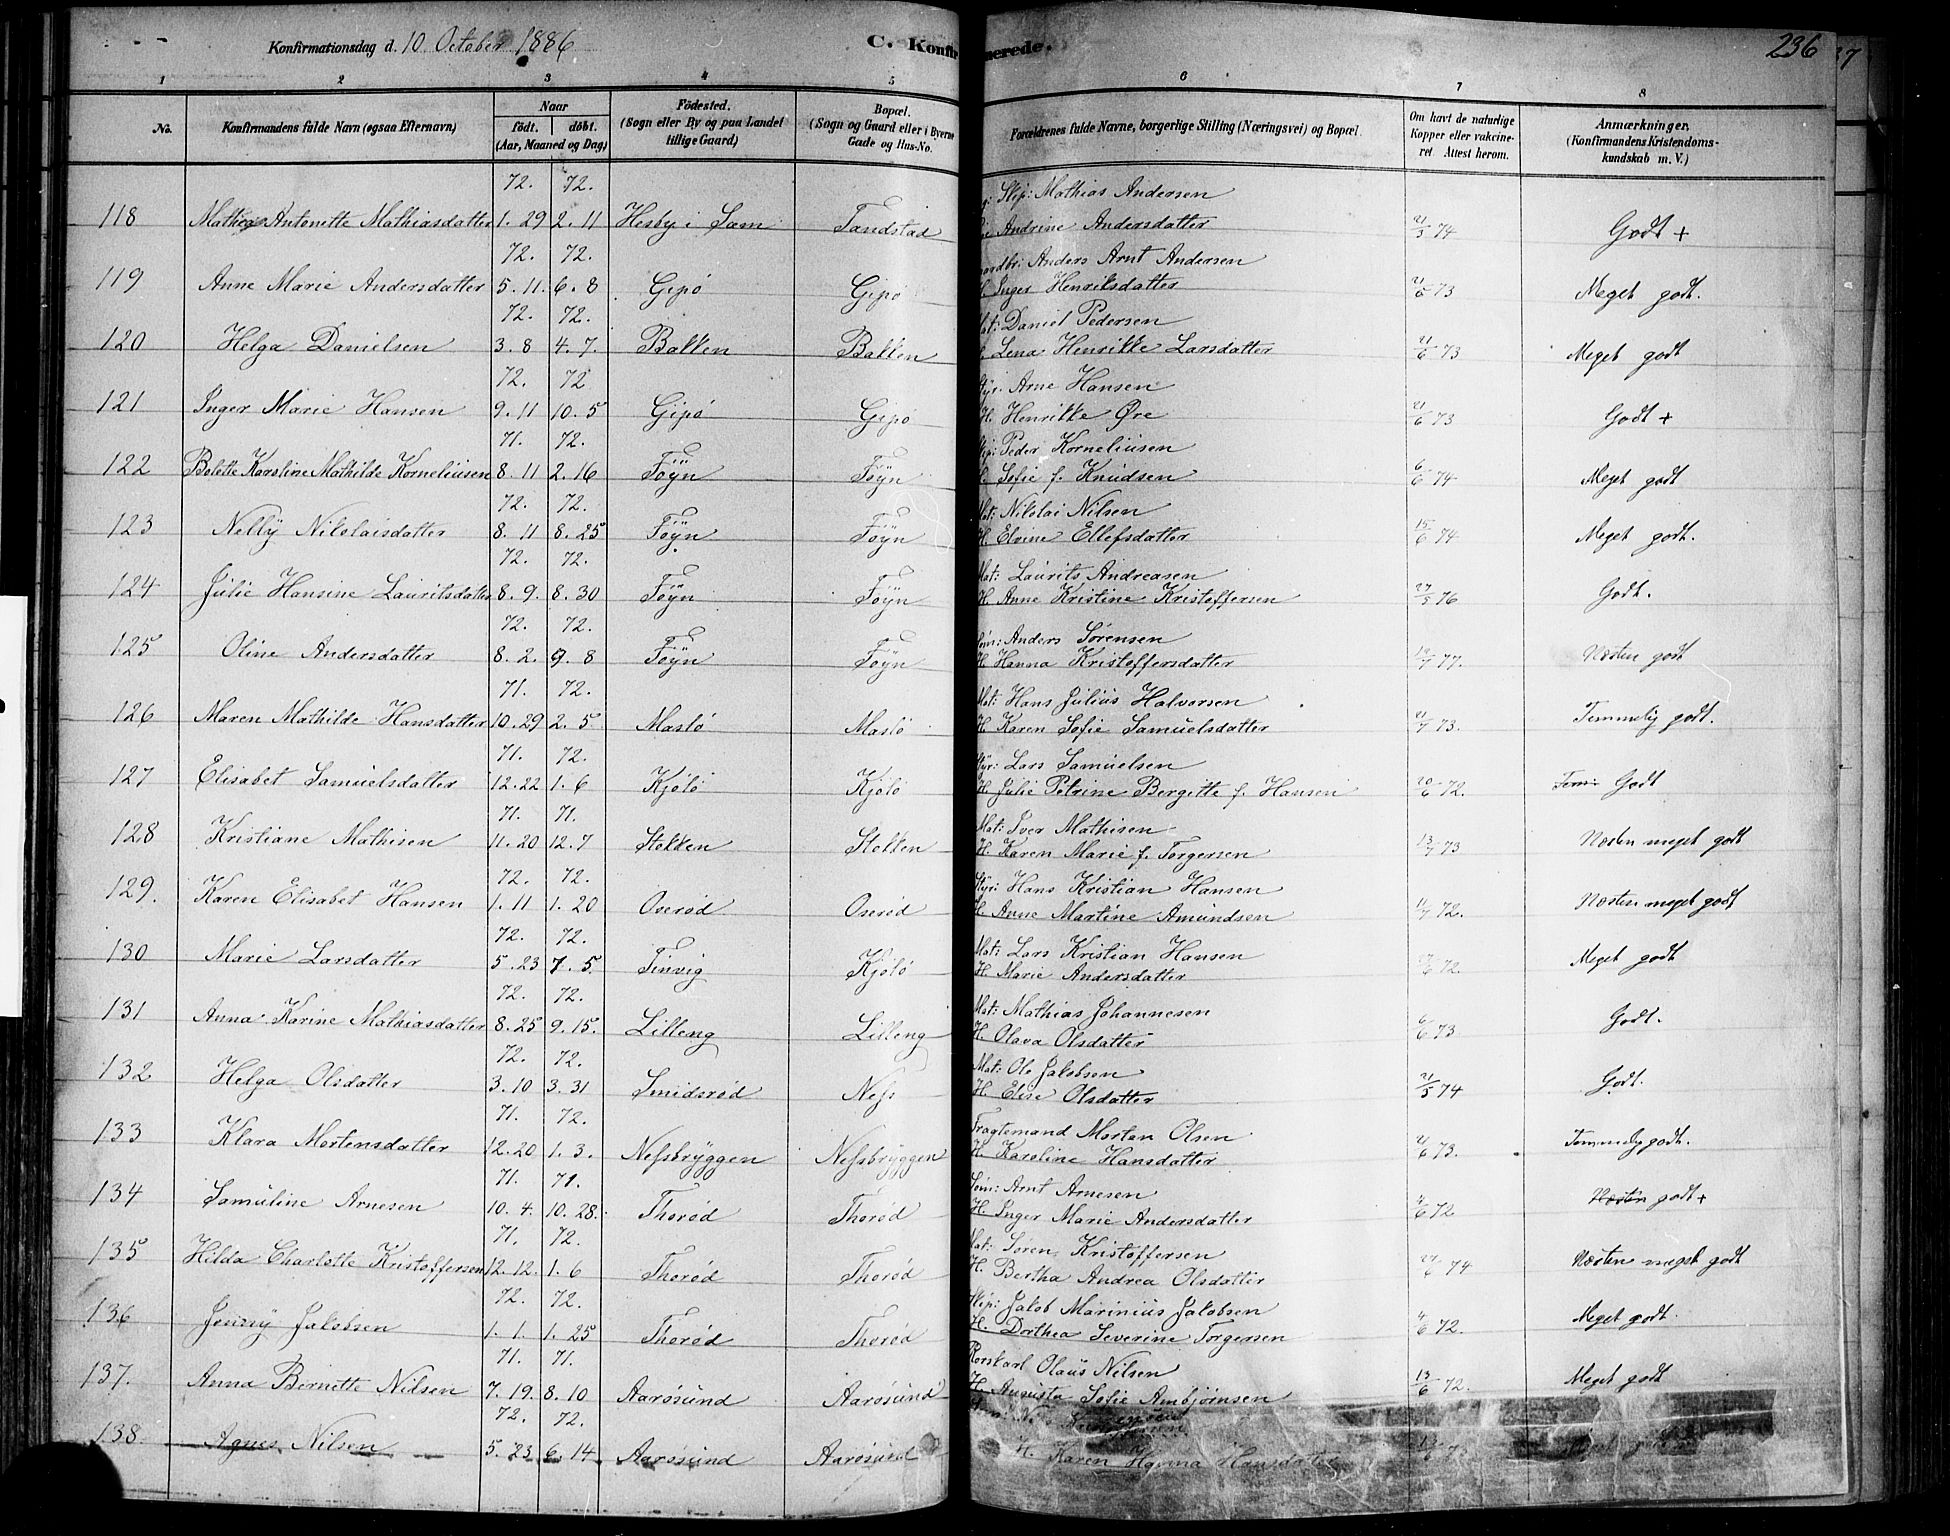 Konfirmationsdag d. 10 October 1886
C. Konfirmerede.
236
37
1 2 3 4 5 6 7 8
No.
Konfirmandens fulde Navn (ogsaa Efternavn)
Naar
födt. döbt.
(Aar, Maaned og Dag)
Födested.
(Sogn eller By og paa Landet
tillige Gaard)
Bopæl.
(Sogn og Gaard eller i Byerne
Gade og Hus-No.
Forældrenes fulde Navne, borgerlige Stilling (Næringsvei) og Bopæl.
Om havt de naturlige
Kopper eller vakcine-
ret. Attest herom.
Anmærkninger.
(Konfirmandens Kristendoms-
kundskab m. V.)
72. 72. Skp: Mathias Andersen
118 Mathea Antonette Mathiasdatter 1. 29 2. 11 Hesby i Sem Tandstad Andrine Andersdatter 21/5 74 Godt +
72. 72. Anders Arnt Andersen
119 Anne Marie Andersdatter 5. 11. 6. 8 Gipö Gipö H. Inger Henriksdatter 21/6 73 Meget godt.
72. 72. Mat: Daniel Pedersen
120 Helga Danielsen 3. 8 4. 7. Bakken Bakken Lena Henrikke Larsdatter 21/6 73 Meget godt
72. 72 Styr. Arne Hansen
121 Inger Marie Hansen 9. 11 10. 5 Gipö Gipö H. Henrikke Øre 21/6 73 Godt +
71. 72. Skp: Peder Korneliusen
122 Bolette Karoline Mathilde Korneliusen 8. 11 2. 16 Föyn Föyn Sofie f. Knudsen 6/6 74 Meget godt
72. 72. Mat: Nikolai Nilsen
123 Nelly Nikolaisdatter 8. 11 8. 25 Föyn Föyn H. Elvine Ellefsdatter 15/6 74 Meget godt.
72. 72. Mat: Laurits Andreasen
124 Julie Hansine Lauritsdatter 8. 9. 8. 30 Föyn Föyn H. Anne Kristine Kristoffersen 27/5 76 Godt.
72. 72. Söm: Anders Sörensen
125 Oline Andersdatter 8. 2. 9. 8 Föyn Föyn H. Hanna Kristoffersdatter 77. Næsten godt
71. 72. Mat: Hans Julius Halvorsen
126 Maren Mathilde Hansdatter 10. 29 2. 5. Maslö Maslö H. Karen Sofie Samuelsdatter 21/7 73. Temmelig godt.
71. 72. Styr: Lars Samuelsen
127 Elisabet Samuelsdatter 12. 22 1. 6 Kjölö Kjölö H. Julie Petrine Bergitte f. Hansen 20/6 72. Tem. Godt
71. 71. Mat: Iver Mathisen
128 Kristiane Mathisen 11. 20 12. 7 Stokken Stokken H. Karen Marie f. Torgersen 13/7 73 Næsten meget godt
72. 72. Styr: Hans Kristian Hansen
129. Karen Elisabet Hansen 1. 11 1. 20 Oseröd Oseröd H. Anne Martine Amundsen 11/7 72. Næsten meget godt
72. 72. Mat: Lars Kristian Hansen
130 Marie Larsdatter 5. 23 7. 5. Finvig Kjölö H. Marie Andersdatter 72. Meget godt
72. 72. Mat: Mathias Johannesen
131 Anna Karine Mathiasdatter 8. 25 9. 15. Lilleng Lilleng H. Olava Olsdatter 6/6 73 Godt.
72. 72. Mat: Ole Jakobsen
132 Helga Olsdatter 3. 10 3. 31 Smidsröd Nefs H. Elise Olsdatter 21/5 74 Godt.
71. 72. Fragtemand Morten Olsen
133 Klara Mortensdatter 12. 20 1. 3. Nefsbryggen Nefsbryggen H. Karoline Hansdatter 21/6 73. Temmelig godt.
71. 71. Söm: Arnt Arnesen
134 Samuline Arnesen 10. 4. 10. 28. Thoröd Thoröd H. Inger Marie Andersdatter 72 Næsten godt +
71. 72. Mat: Sören Kristoffersen
135 Hilda Charlotte Kristoffersen 12. 12. 1. 6 Thoröd Thoröd H. Bertha Andrea Olsdatter 74 Næsten meget godt
72. 72. Skp: Jakob Marinius Jakobsen
136 Jenny Jakobsen 1. 1. 1. 25 Thoröd Thoröd H. Dorthea Severine Torgersen 72. Meget godt.
71. 71. Olaus Nilsen
137. Anna Bernette Nilsen 7. 19. 8. 10 Aarösund Aarösund H. Augusta Sofie Ambjörnsen 13/6 72. Meget godt
72. 72.
138. Agnes Nilsen 5. 23 6. 14 Aarösund Aarösund H. Karen Hanna Hansdatter